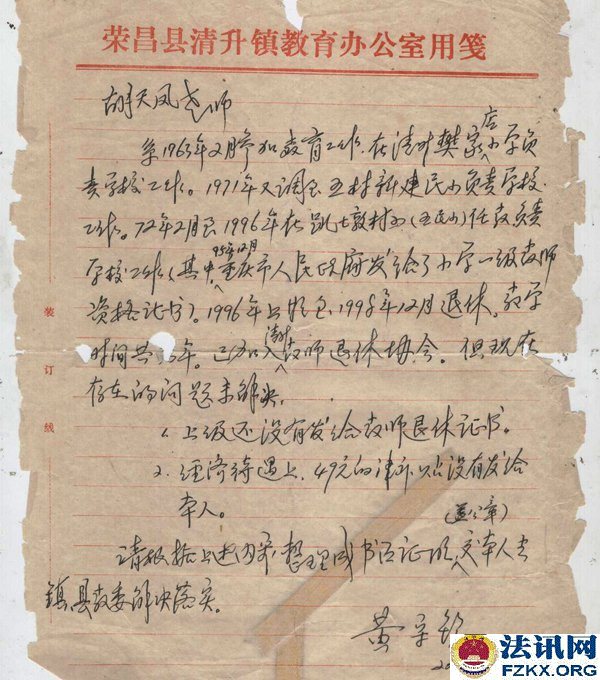 荣昌县清升镇教育办公室用笺
胡天凤老师
至1963年2月参加教育工作,在清升樊家店小学负
责学校工作。1971年又调至五村新建民小负责学校
工作。72年2月至1996年在凯七敦村小(五民小)任教负责
学校工作(其中95年12月重庆市人民政府发给了小学一级教师
资格证书)。1996年上班至1998年12月退休。教学
时间共 年。已加入清升教师退休协会。但现在
存在的问题未解决。
1. 上级还没有发给教师退休证书。
2. 经济待遇上,49元的津 没有发给
本人。
(盖公章)
请根据上述内容,整理成书面证 交本人去
镇、县教委解决落实。
黄
20
装
订
线
法讯网
FZKX.ORG